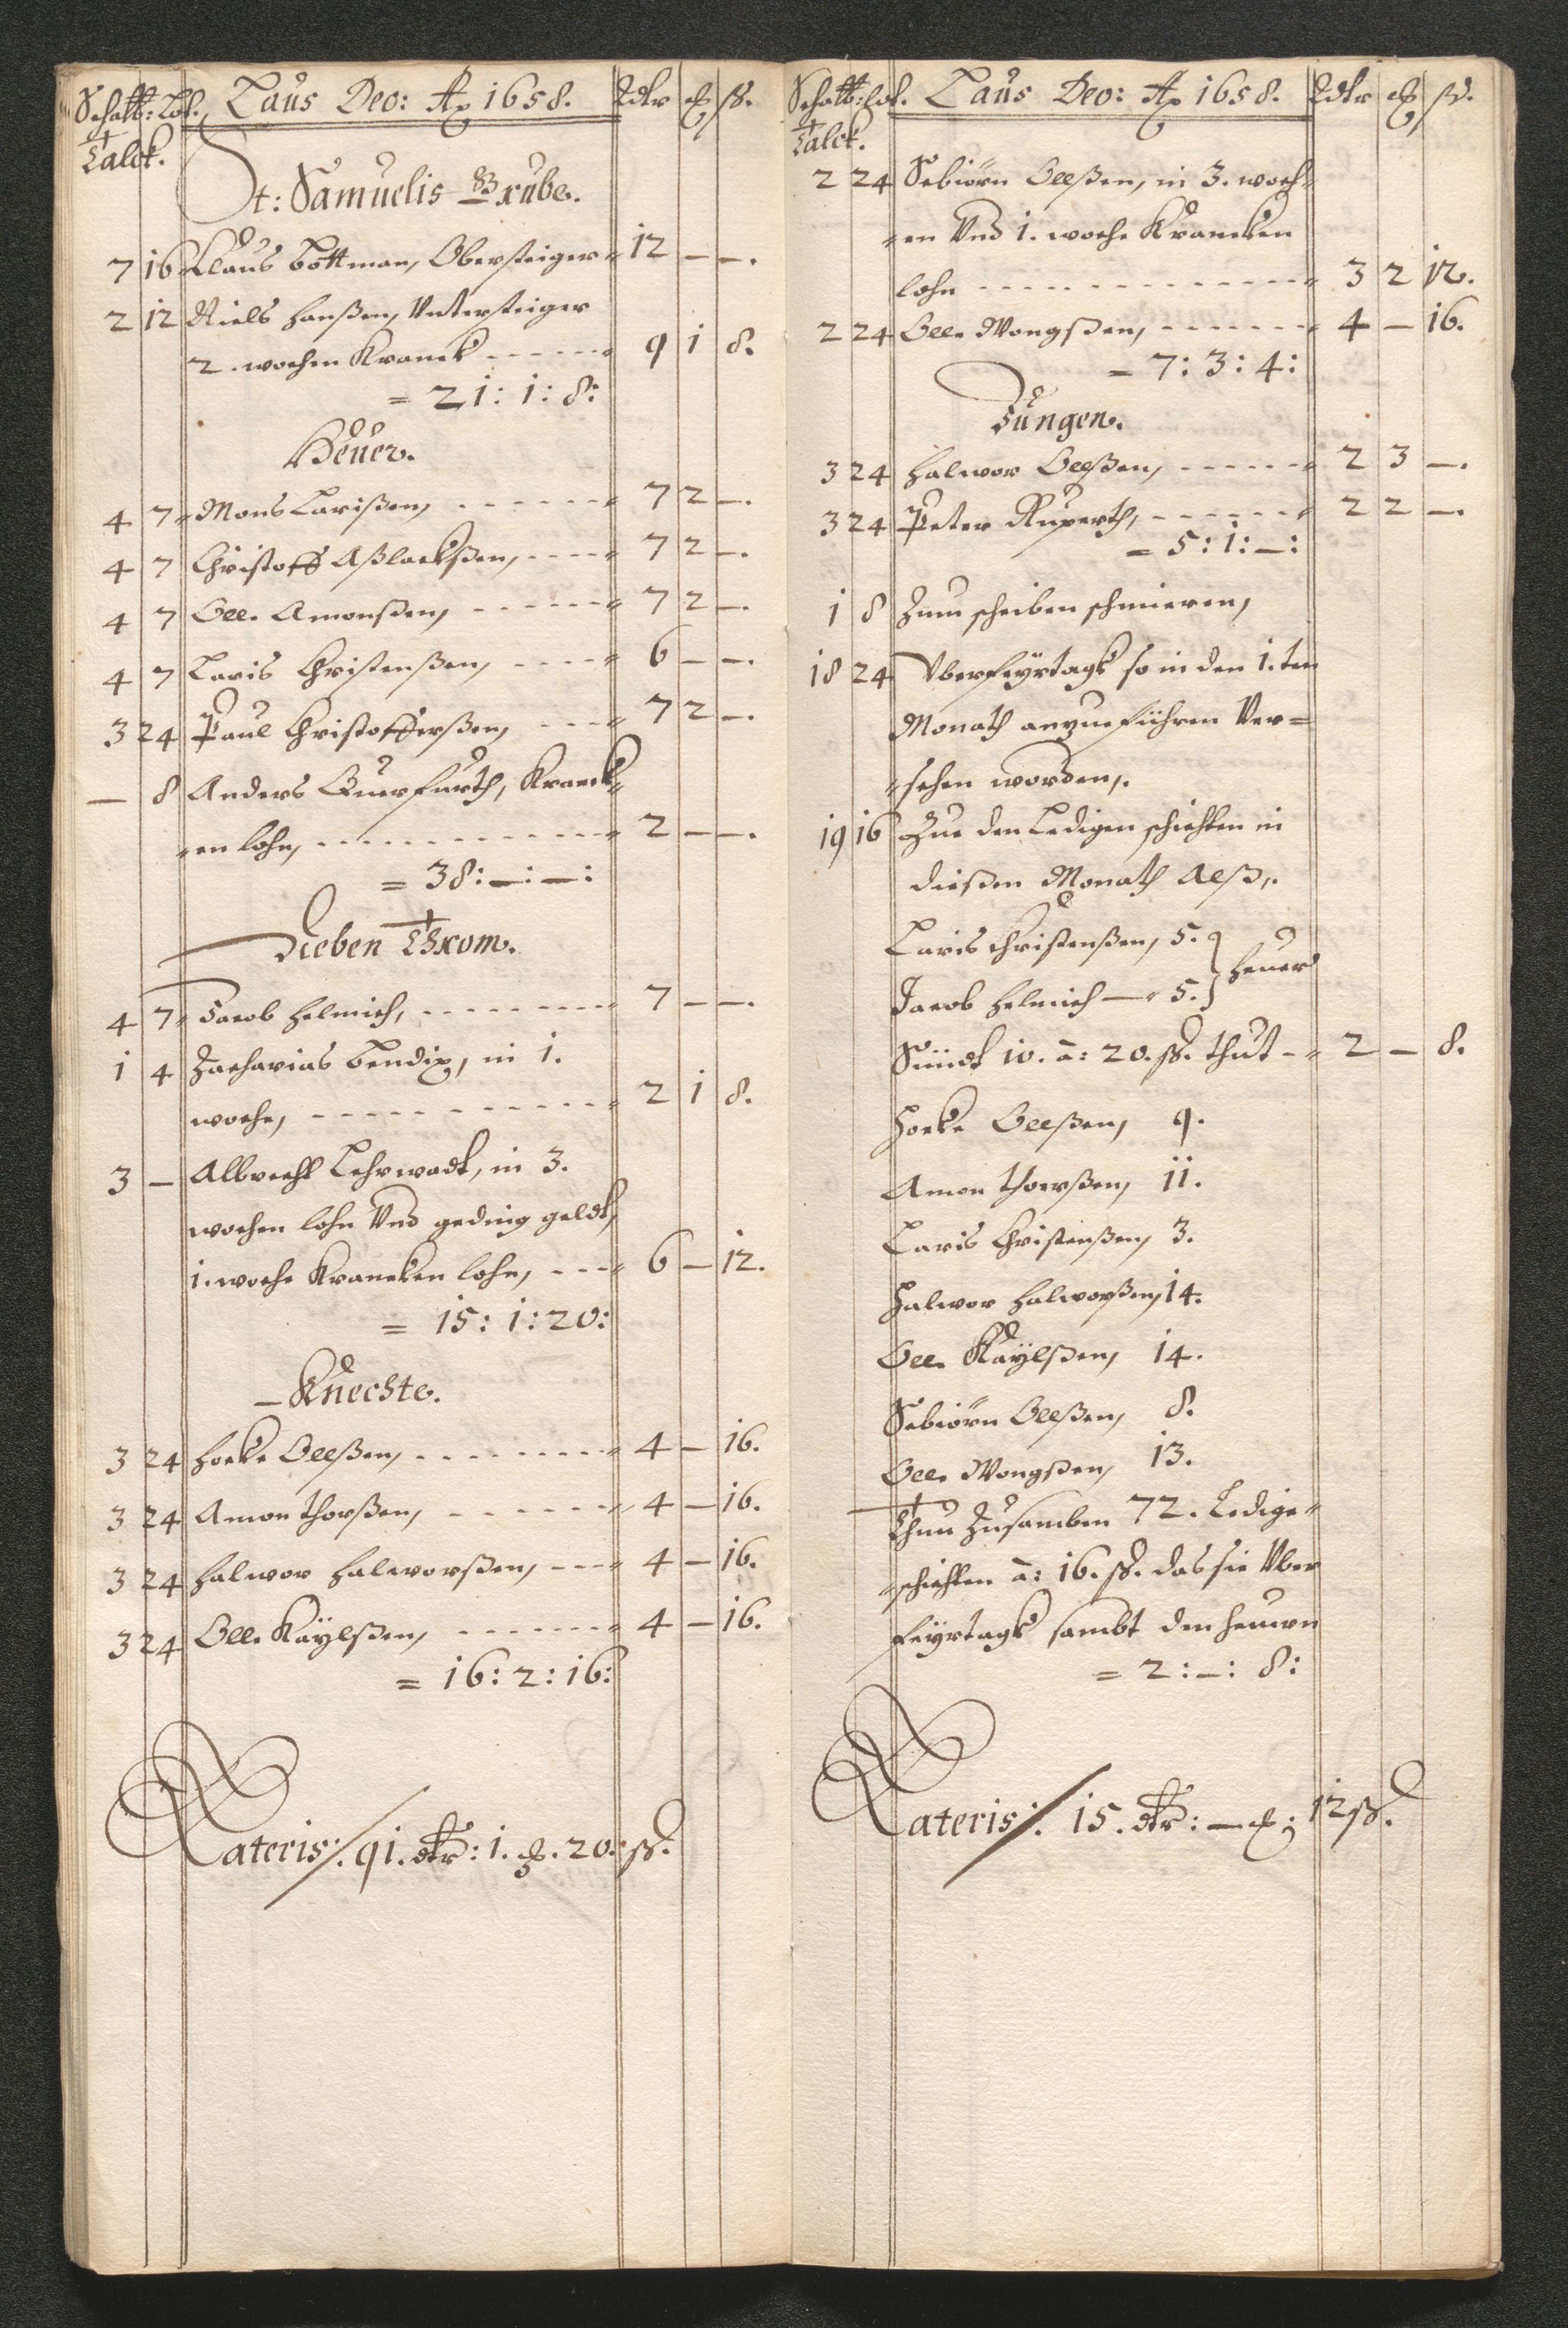 Schatt: Lot. Laus Deo: Ao 1658. Rdlr ȹ ß.
Talck.
St: Samuelis Grube.
7 16 Claus Bottman, Obersteiger 12 — —.
2 12 Niels Hanßen, Untersteiger
2. wochen Kranck ------ 9 1 8.
= 21: 1: 8:
Heuer.
4 7 Mons Larißen, ------ 7 2 —.
4 7 Christoff Aßlackßen, ---- 7 2 —.
4 7 Olle Amonßen, ------ 7 2 —.
4 7 Laris Christenßen, ---- 6 — —.
3 24 Paul Christofferßen, --- 7 2 —.
— 8 Anders Querfurth, Kranck=
=en lohn, -------- 2 — —.
= 38: —: —:
Lieben Throm.
4 7 Jacob Helmich, -------- 7 — —.
1 4 Zacharias Bendix, in 1.
woche, ------------ 2 1 8.
3 — Albrecht Lehrwadt, in 3.
wochen lohn Und geding geldt,
1. woche Krancken lohn, --- 6 — 12.
= 15: 1: 20:
Knechte.
3 24 Hocke Olleßen, -------- 4 — 16.
3 24 Amon Thorßen, ------ 4 — 16.
3 24 Halwor Halworßen, --- 4 — 16.
3 24 Olle Käylßen, ------- 4 — 16.
= 16: 2: 16:
Lateris:/. 91. dlr: 1. ȹ. 20: ß.
Schatt: Lot. Laus Deo: Ao 1658. Rdlr ȹ ß.
Talck.
2 24 Sebiörn Olleßen, in 3. woch=
=en Und 1. woche Krancken
lohn -------------- 3 2 12.
2 24 Olle Wongßen, ------- 4 — 16.
= 7: 3: 4:
Jungen.
3 24 Halwor Olleßen, ------ 2 3 —.
3 24 Peter Ruperth, ------ 2 2 —.
= 5: 1: —:
1 8 Zum scheiben schmieren,
18 24 Uberfeyrtags so in den 1.ten
Monath anzueführen Ver=
=sehen worden,.
19 16 Zue den Ledigen schichten in
dießen Monath Alß,.
Laris Christenßen, 5. } Heuer
Jacob Helmich — 5. }
Sündt 10. à: 20. ß. thut - 2 — 8.
Hocke Olleßen, 9.
Amon Thorßen, 11.
Laris Christenßen, 3.
Halwor Halworßen, 14.
Olle Käylßen, 14.
Sebiörn Olleßen, 8.
Olle Wongßen, 13.
Thun Zusamben 72. Ledige=
=schichten à: 16. ß. das sie Uber
feyrtags sambt den Heuern
= 2: —: 8:
Lateris:/. 15. dlr: — ȹ: 12 ß.